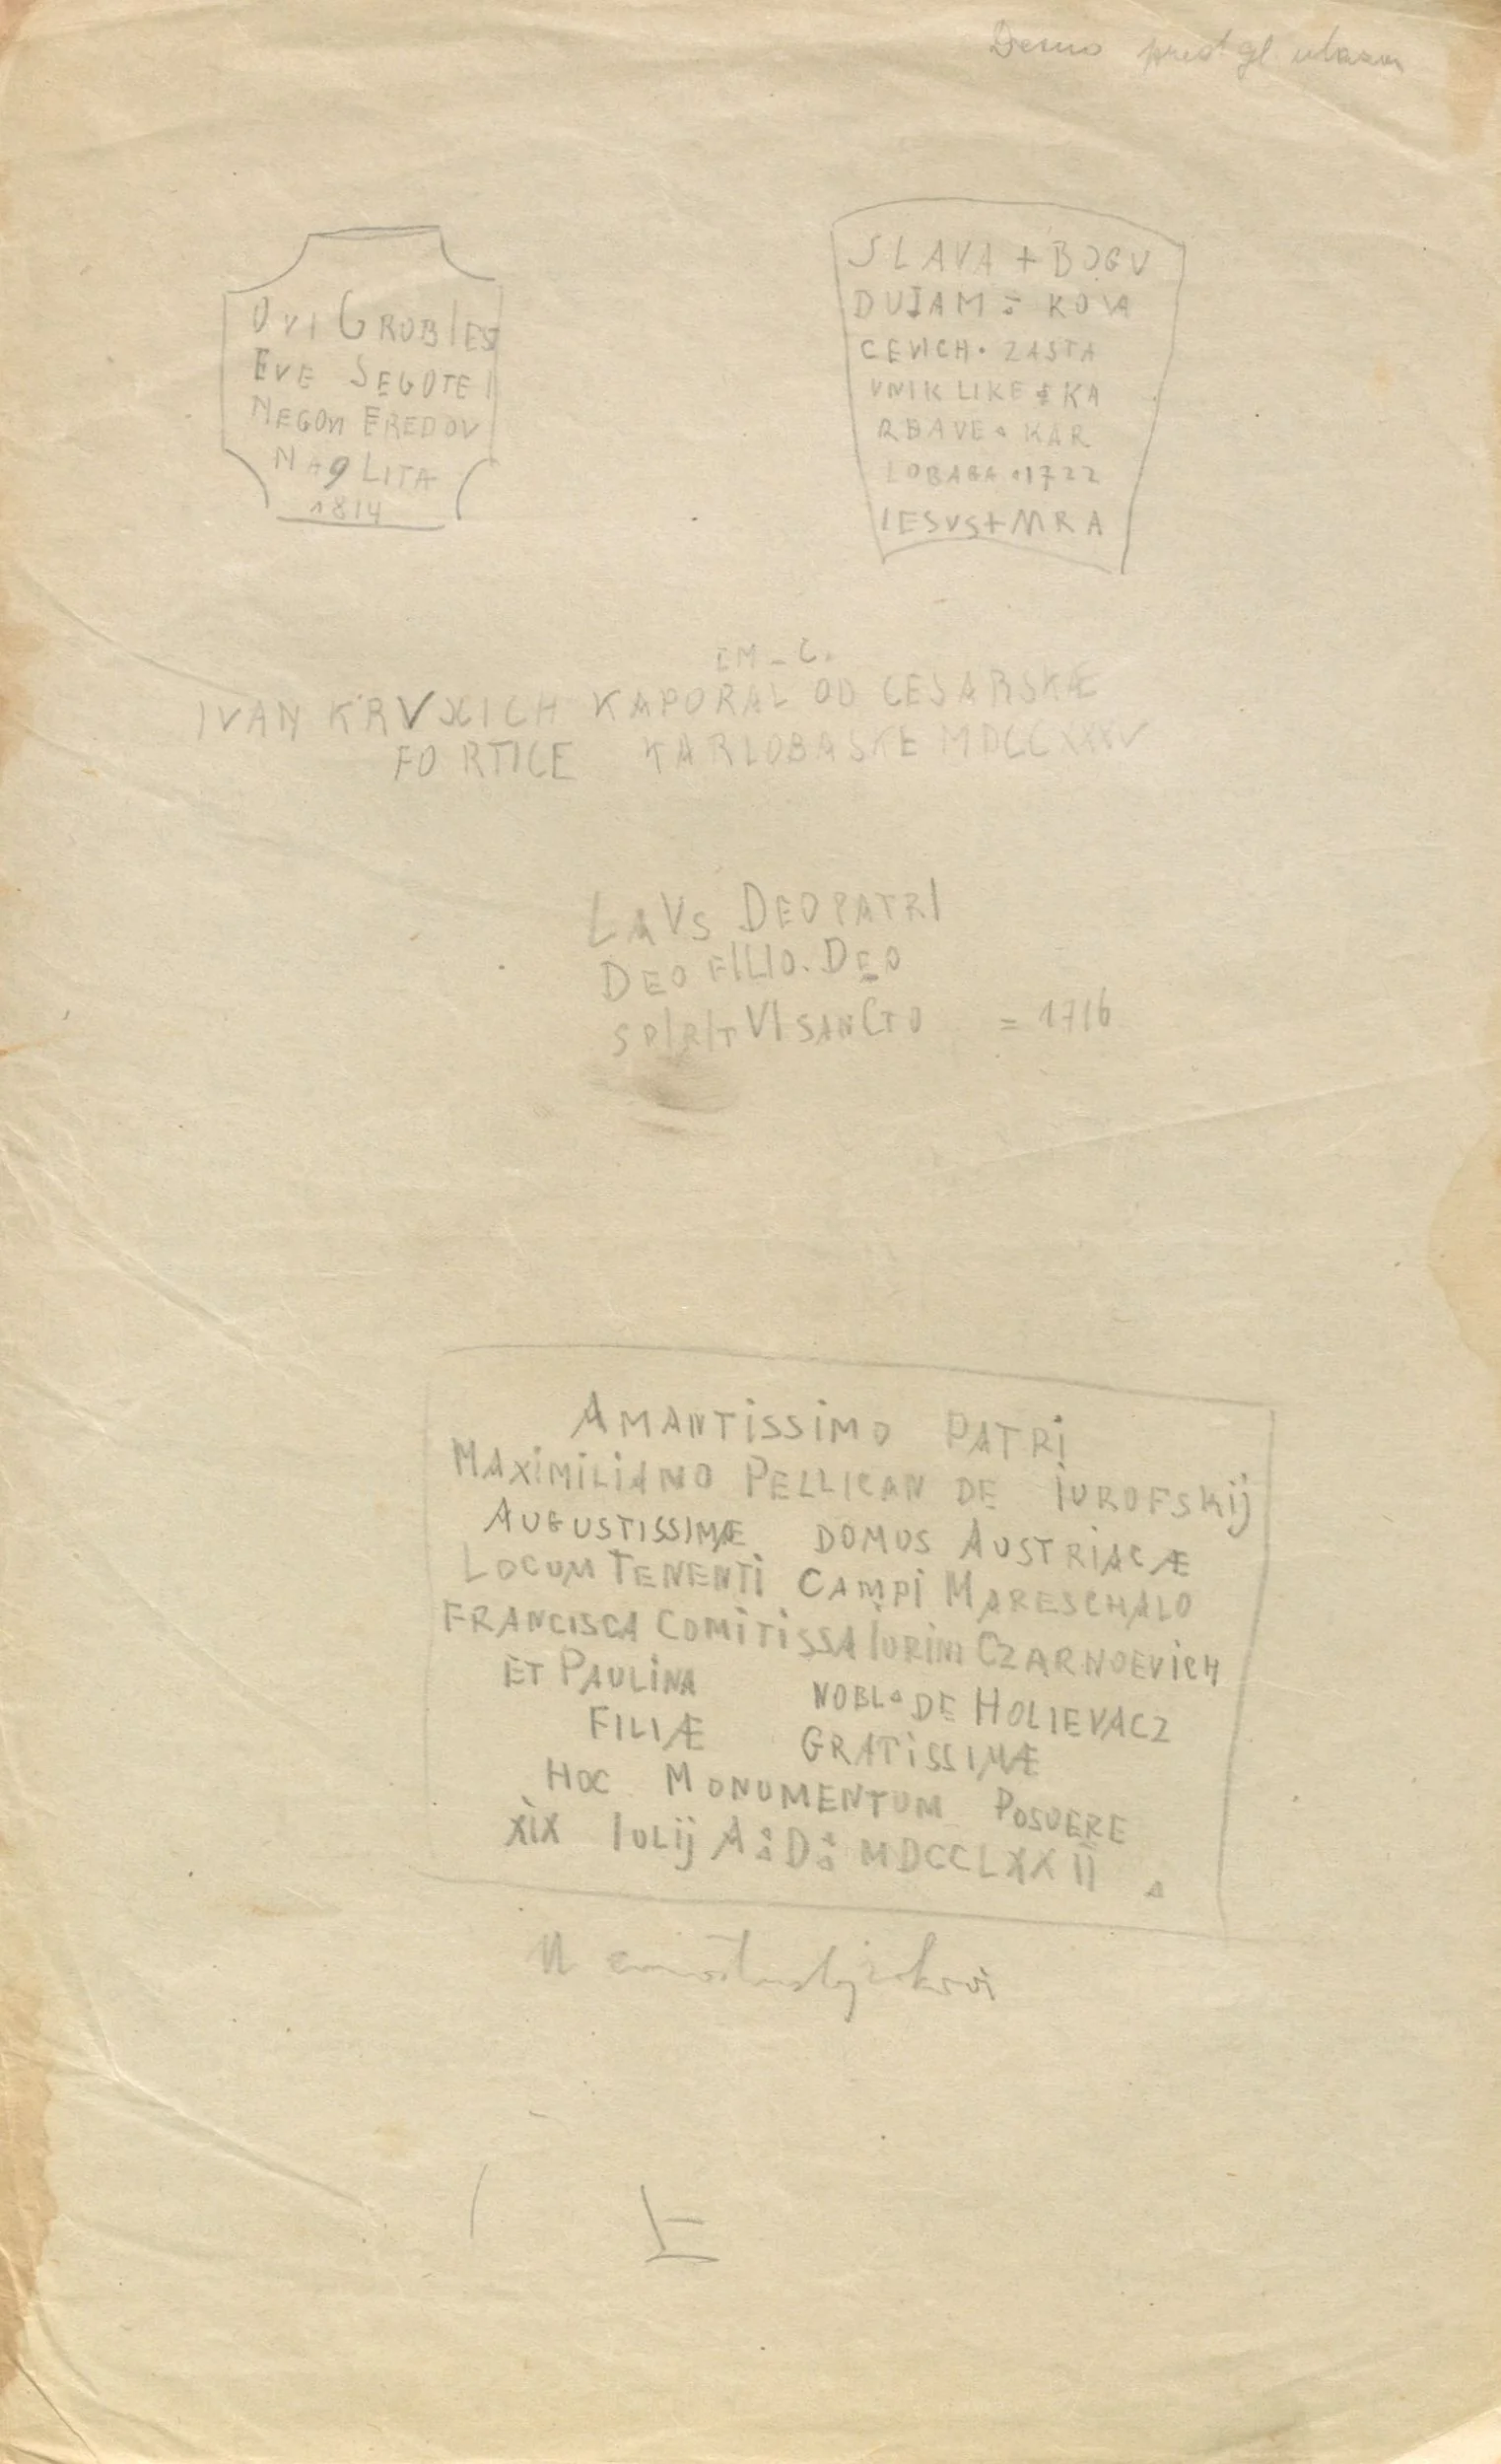 Desno pred gl ulazom
OVI GROBIES
EVE SEGOTE I
NEGOVI EREDOV
NA 9 LITA
1814
SLAVA + BOGU
DUJAM : KOVA
CEVICH · ZASTA
VNIK LIKE & KA
RBAVE · KAR
LOBAGA · 1722
IESVS + MRA
IM - C.
IVAN KRVXICH KAPORAL OD CESARSKÆ
FORTICE KARLOBASKE MDCCXXXV
LAVS DEO PATRI
DEO FILIO. DEO
SPIRITVI SANCTO = 1716
AMANTISSIMO PATRI
MAXIMILIANO PELLICAN DE IUROFSKIJ
AUGUSTISSIMÆ DOMUS AUSTRIACÆ
LOCUM TENENTI CAMPI MARESCHALO
FRANCISCA COMITISSA IURIM CZARNOEVICH
ET PAULINA NOBL. DE HOLIEVACZ
FILIÆ GRATISSIMÆ
HOC MONUMENTUM POSUERE
XIX IULIJ A: D: MDCCLXXII .
U